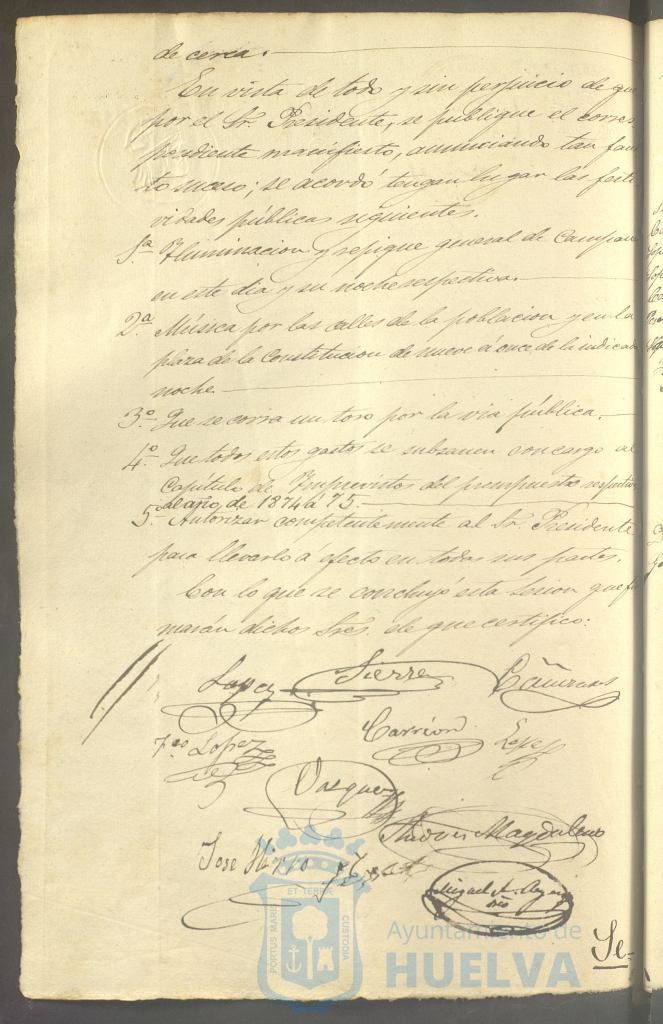 de cerca.
En vista de todo y sin perjuicio de que
por el Sr. Presidente, se publique el corres
pondiente manifiesto, anunciando tan faus
to suceso; se acordó tengan lugar las festi
vidades públicas siguientes.
1.ª Iluminacion y repique general de Campanas
en este dia y su noche respectiva.
2.ª Música por las calles de la poblacion y en la
plaza de la Constitucion de nueve á once de la indicada
noche.
3.º Que se corra un toro por la via pública.
4.º Que todos estos gastos se subsanen con cargo al
Capitulo de Imprevistos del presupuesto respectivo
al año de 1874 á 75.
5.º Autorizar competentemente al Sr. Presidente
para llevarlo a efecto en todas sus partes.
Con lo que se concluyó esta Sesion que fir
marán dichos Sres. de que certifico:
Lopez Sierra
Lopez Carrion
Vazquez
Magdaleno
Jose
Miguel A.
PORTUS MARIS ET TERRAE CUSTODIA
Ayuntamiento de
HUELVA
Se-